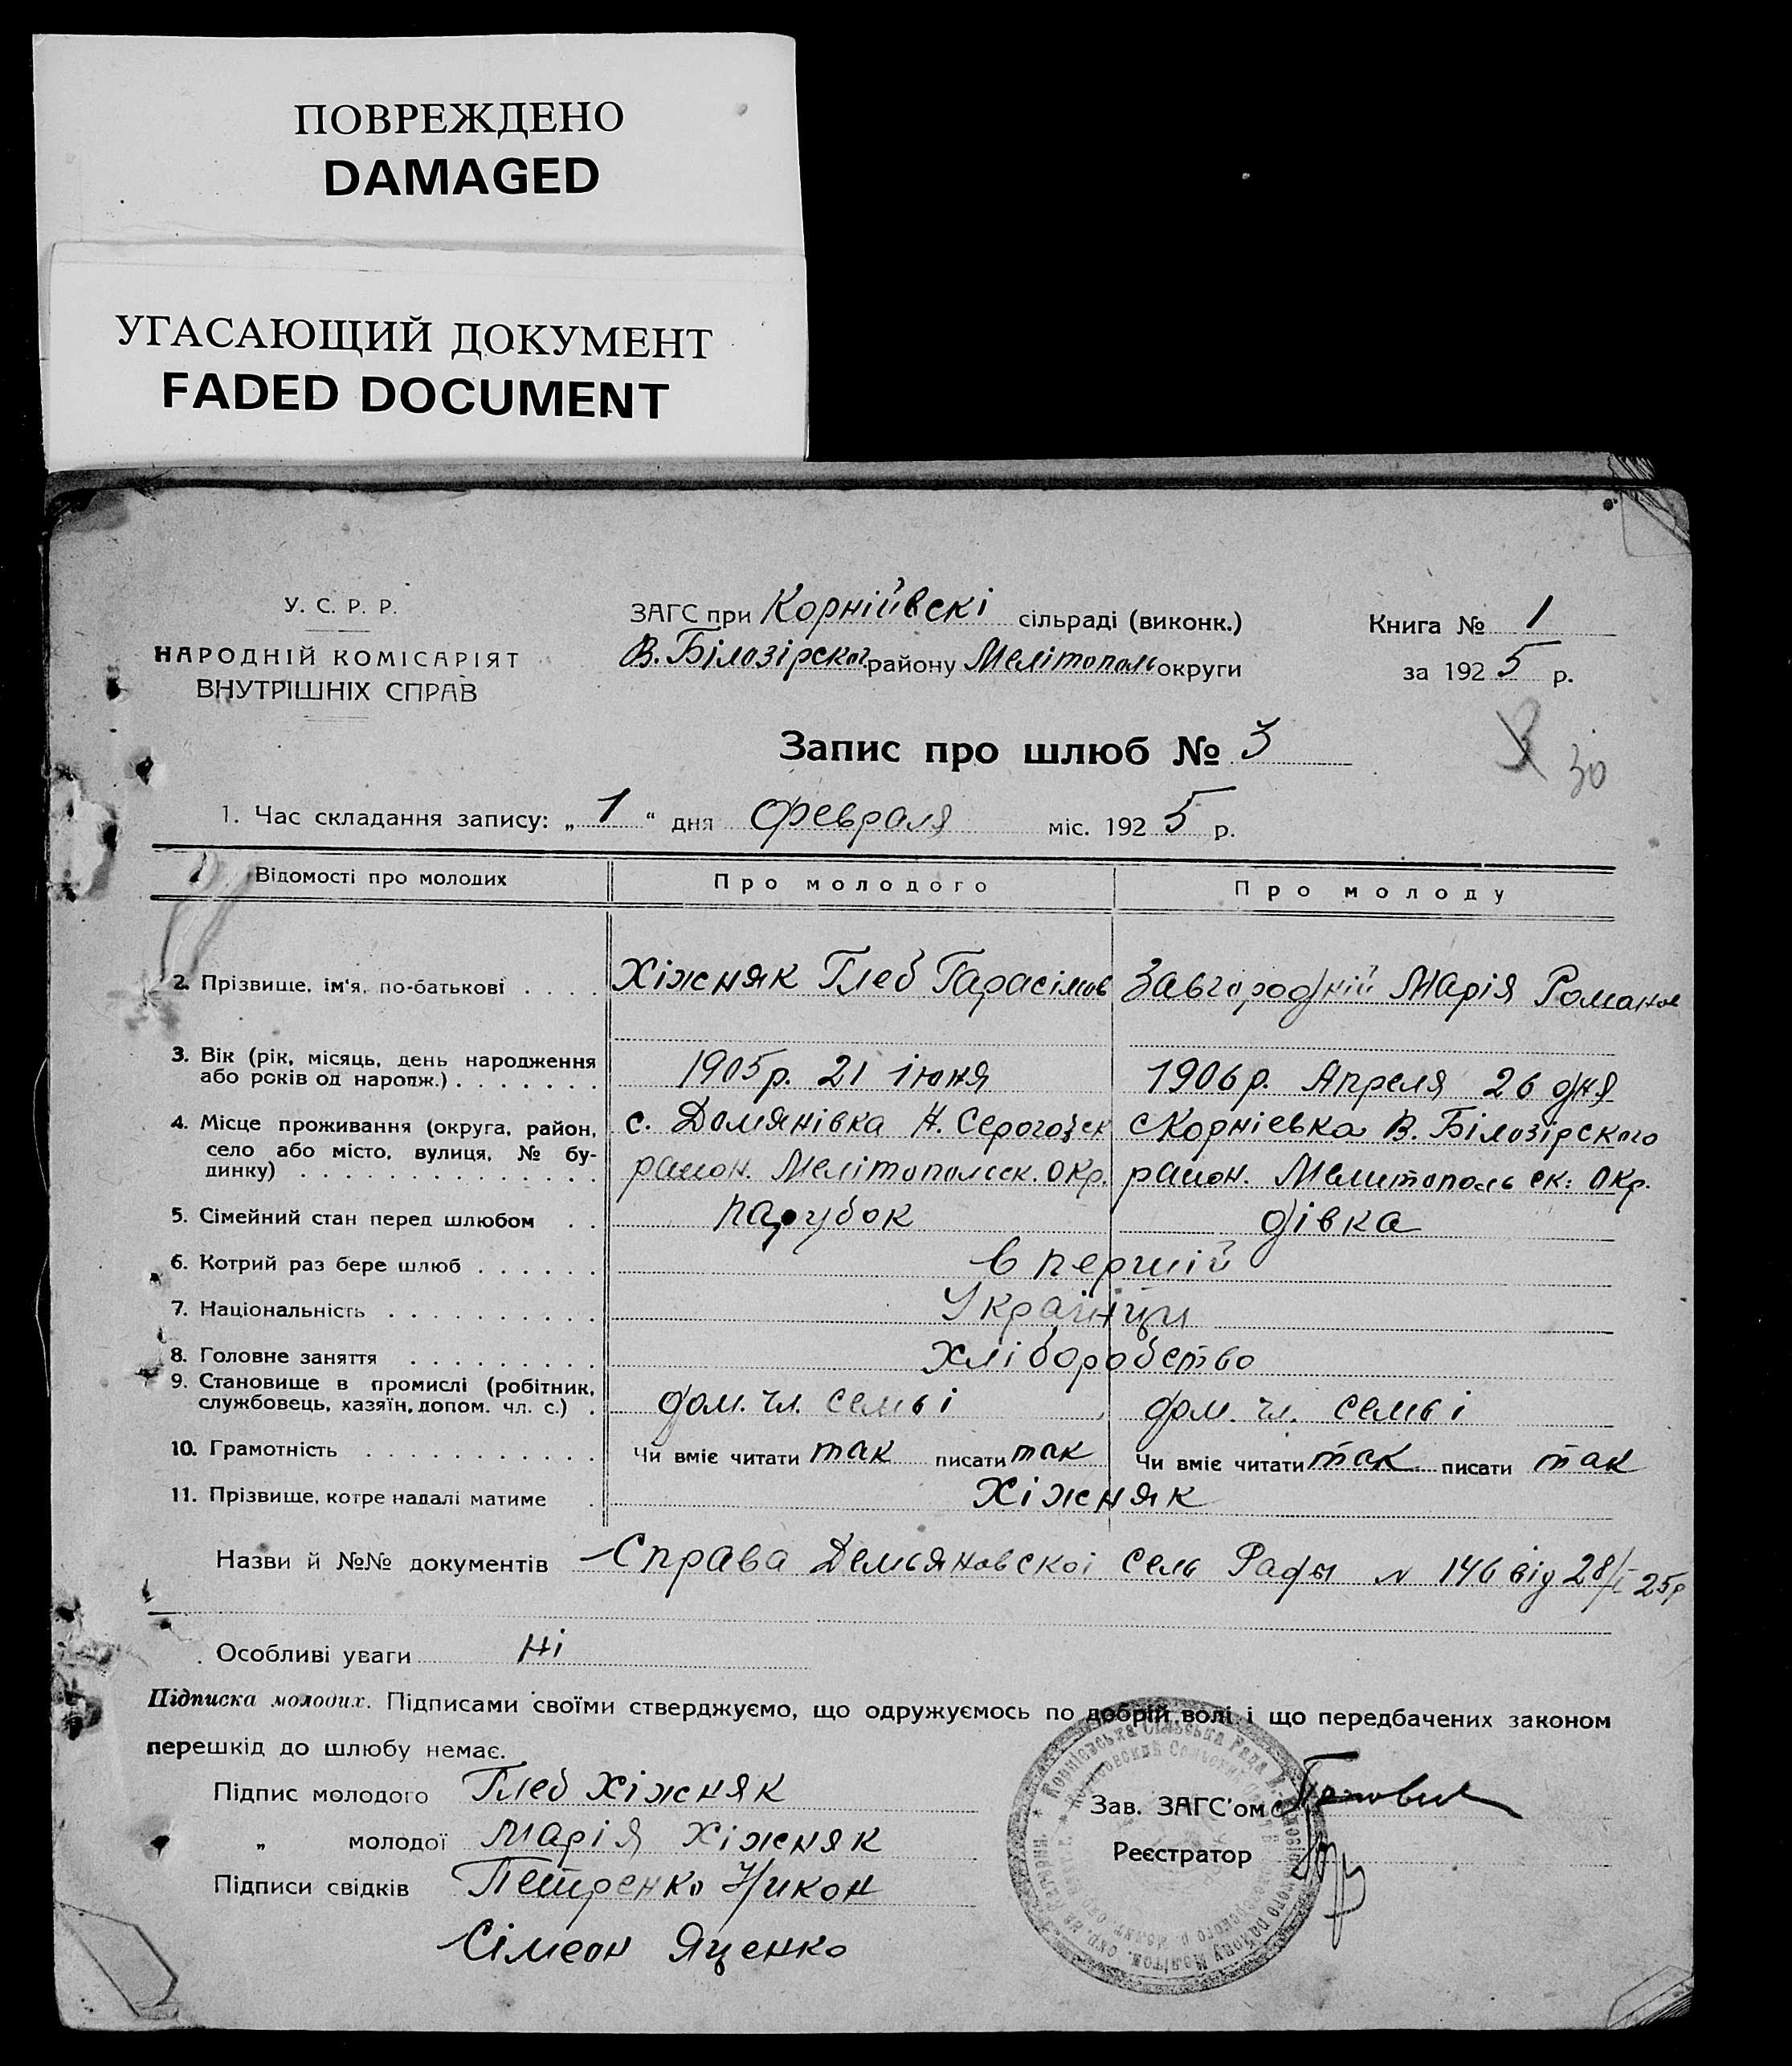 ПОВРЕЖДЕНО
DAMAGED
УГАСАЮЩИЙ ДОКУМЕНТ
FADED DOCUMENT
У. С. Р. Р.
НАРОДНІЙ КОМІСАРІЯТ
ВНУТРІШНІХ СПРАВ
ЗАГС при Корнійвскі сільраді (виконк.)
В. Білозірског. району Мелітополь округи
Книга № 1
за 1925 р.
Запис про шлюб № 3
30
1. Час складання запису: „ 1 “ дня февраля міс. 1925 р.
Відомості про молодих Про молодого Про молоду
2. Прізвище, ім'я, по-батькові . . . . Хіжняк Глеб Гарасімов Завгородній Марія Романов
3. Вік (рік, місяць, день народження
або років од народж.) . . . . . . . 1905р. 21 іюня 1906р. Апреля 26 дня
4. Місце проживання (округа, район, с. Домянівка Н. Серогозск с Корніевка В. Білозірского
село або місто, вулиця, № бу-
динку) . . . . . . . . . . . . . . район. Мелітопольск. окр. район. Мелитополь ск: окр.
5. Сімейний стан перед шлюбом . . парубок дівка
6. Котрий раз бере шлюб . . . . . . в перший
7. Національність . . . . . . . . . . Українци
8. Головне заняття . . . . . . . . . хліборобство
9. Становище в промислі (робітник,
службовець, хазяїн, допом. чл. с.) . дом. чл. семьі дом. чл. семьі
10. Грамотність . . . . . . . . . . . Чи вміє читати так писати так Чи вміє читати так писати так
11. Прізвище, котре надалі матиме . Хіжняк
Назви й №№ документів Справа Демьяновскоі Сель Рады № 146 від 28/I 25р
Особливі уваги ні
Підписка молодих. Підписами своїми стверджуємо, що одружуємось по добрій волі і що передбачених законом
перешкід до шлюбу немає.
Підпис молодого Глеб Хіжняк
„ молодої Марія Хіжняк
Підписи свідків Петренко Никон
Сімеон Яценко
Зав. ЗАГС'ом
Реєстратор
Корніевська Сільська Рада